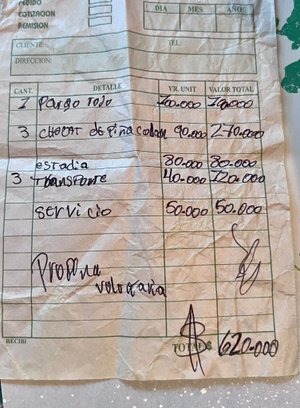 PEDIDO
COTIZACION
REMISION
DIA MES AÑO
CLIENTE: TEL:
DIRECCION:
CANT. DETALLE VR. UNIT VALOR TOTAL
1 Pargo rojo 100.000 100.000
3 de piña colada 90.000 270.000
estadia 80.000 80.000
3 Transporte 40.000 120.000
servicio 50.000 50.000
Propina
RECIBI TOTAL $ 620.000